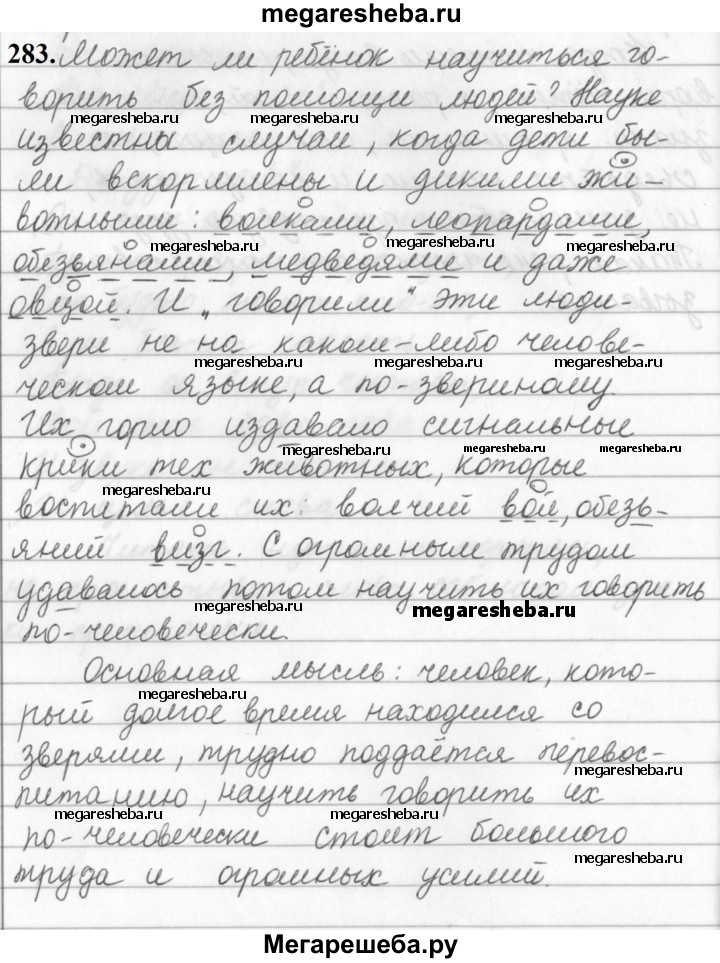 megaresheba.ru
283. Может ли ребёнок научиться го-
ворить без помощи людей? Науке
megaresheba.ru megaresheba.ru megaresheba.ru
известны случаи, когда дети бы-
ли вскормлены и дикими жи-
вотными: волками, леопардами,
megaresheba.ru megaresheba.ru
обезьянами, медведями и даже
овцой. И „говорили“ эти люди-
звери не на каком-либо челове-
megaresheba.ru megaresheba.ru megaresheba.ru
ческом языке, а по-звериному.
Их горло издавало сигнальные
megaresheba.ru megaresheba.ru megaresheba.ru
крики тех животных, которые
megaresheba.ru
воспитали их: волчий вой, обезь-
яний визг. С огромным трудом
удавалось потом научить их говорить
megaresheba.ru megaresheba.ru
по-человечески.
Основная мысль: человек, кото-
megaresheba.ru
рый долгое время находился со
зверями, трудно поддаётся перевос-
megaresheba.ru
питанию, научить говорить их
megaresheba.ru megaresheba.ru
по-человечески стоит большого
megaresheba.ru
труда и огромных усилий.
Мегарешеба.ру